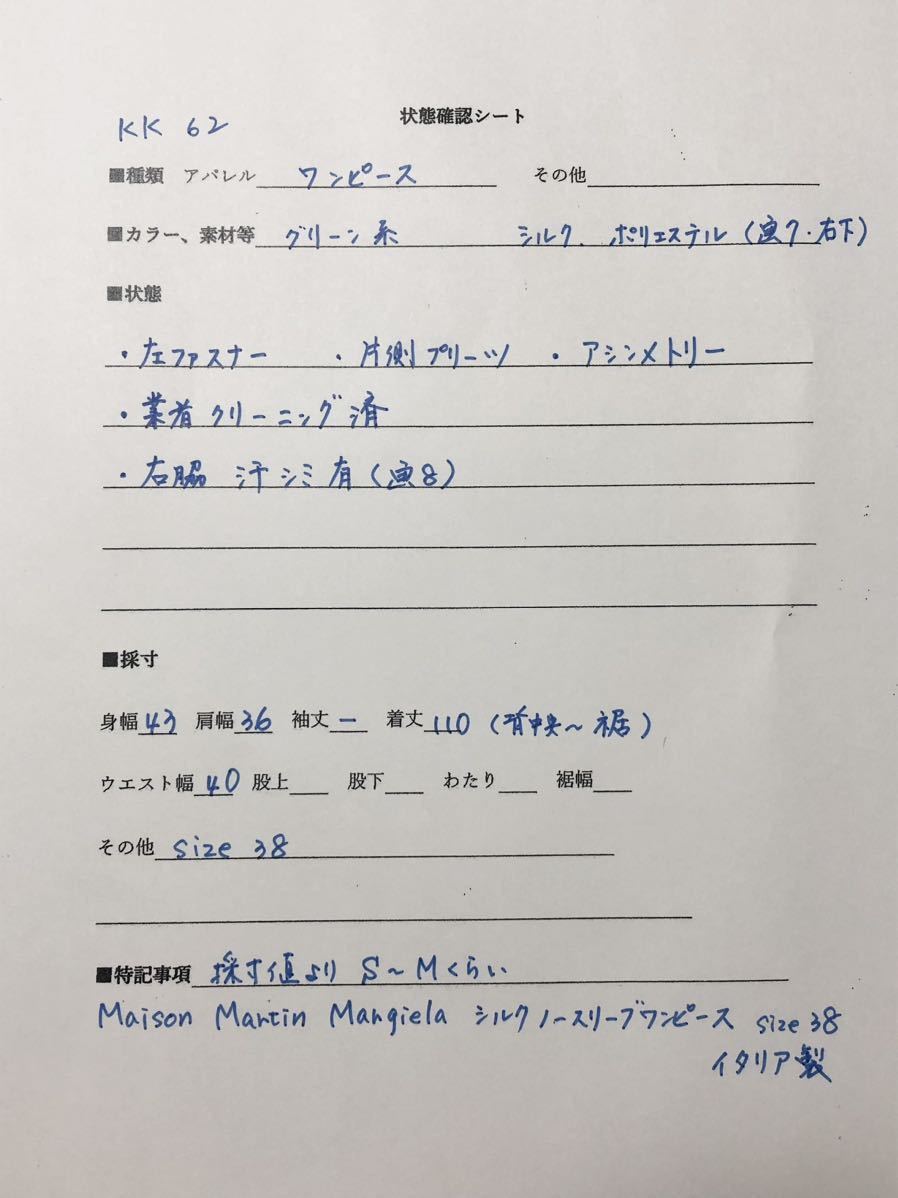 状態確認シート
KK 62
■種類 アパレル ワンピース その他
■カラー、素材等 グリーン系 シルク、ポリエステル(画7・右下)
■状態
・左ファスナー ・片側プリーツ ・アシンメトリー
・業者クリーニング済
・右脇 汗シミ有(画8)
■採寸
身幅43 肩幅36 袖丈ー 着丈110(背中央〜裾)
ウエスト幅40 股上 股下 わたり 裾幅
その他 size 38
■特記事項 採寸値より S〜Mくらい
Maison Martin Margiela シルクノースリーブワンピース size 38
イタリア製